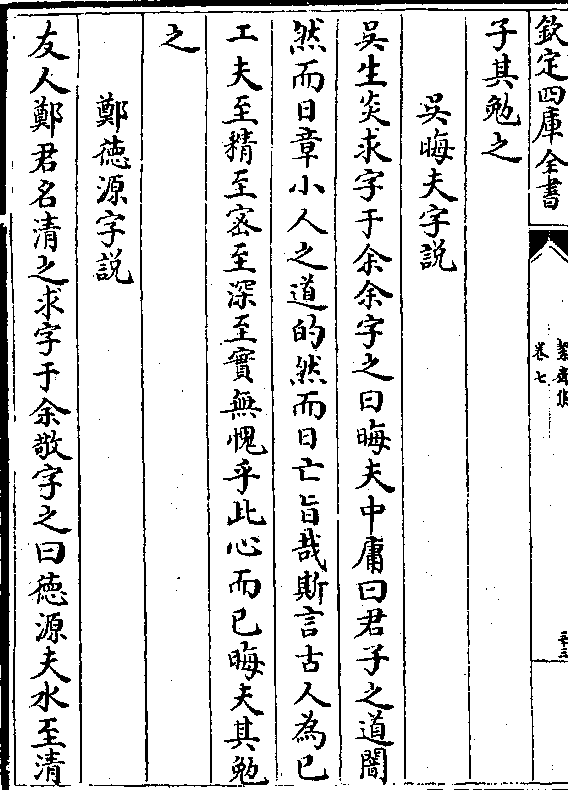 欽定四庫全書
卷七
子其勉之
吳晦夫字説
吳生炎求字于余余字之曰晦夫中庸曰君子之道闇
然而日章小人之道的然而日亡旨哉斯言古人為已
工夫至精至宻至深至實無愧乎此心而已晦夫其勉
之
鄭徳源字説
友人鄭君名清之求字于余敬字之曰徳源夫水至清